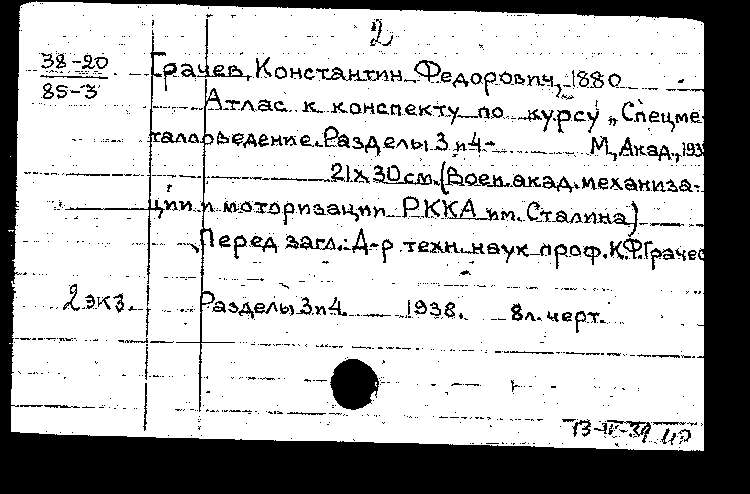 2
38-20 Грачев, Константин Федорович, 1880
85-3 Атлас к конспекту по курсу „Спецме-
талловедение. Разделы 3 и 4- М., Акад., 193
21х30см. (Воен. акад. механиза-
ции и моторизации РККА им. Сталина)
Перед загл.: Д-р техн. наук проф. К.Ф. Грачев
2 экз. Разделы 3 и 4. 1938. 8л. черт.
13-IV-39